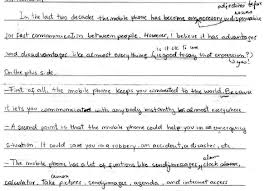 adjectives before nouns
In the last two decades the mobile phone has become any accessory indispensable
for fast communication between people. However, I believe it has advantages
and disadvantages like almost everything (is good to say that expression?)
is it ok to use
yes!
On the plus side.
- First of all, the mobile phone keeps you connected to the world. Because
it lets you communicated with anybody, instantly, be almost everywhere.
- A second point is that the mobile phone could help you in an emergency
situation. It could save you in a robbery, an accident, a disaster, etc
- The mobile phone has a lot of funtions like send messages, clock alarm,
alarm
calculator. Take pictures, send images, agenda, and internet access